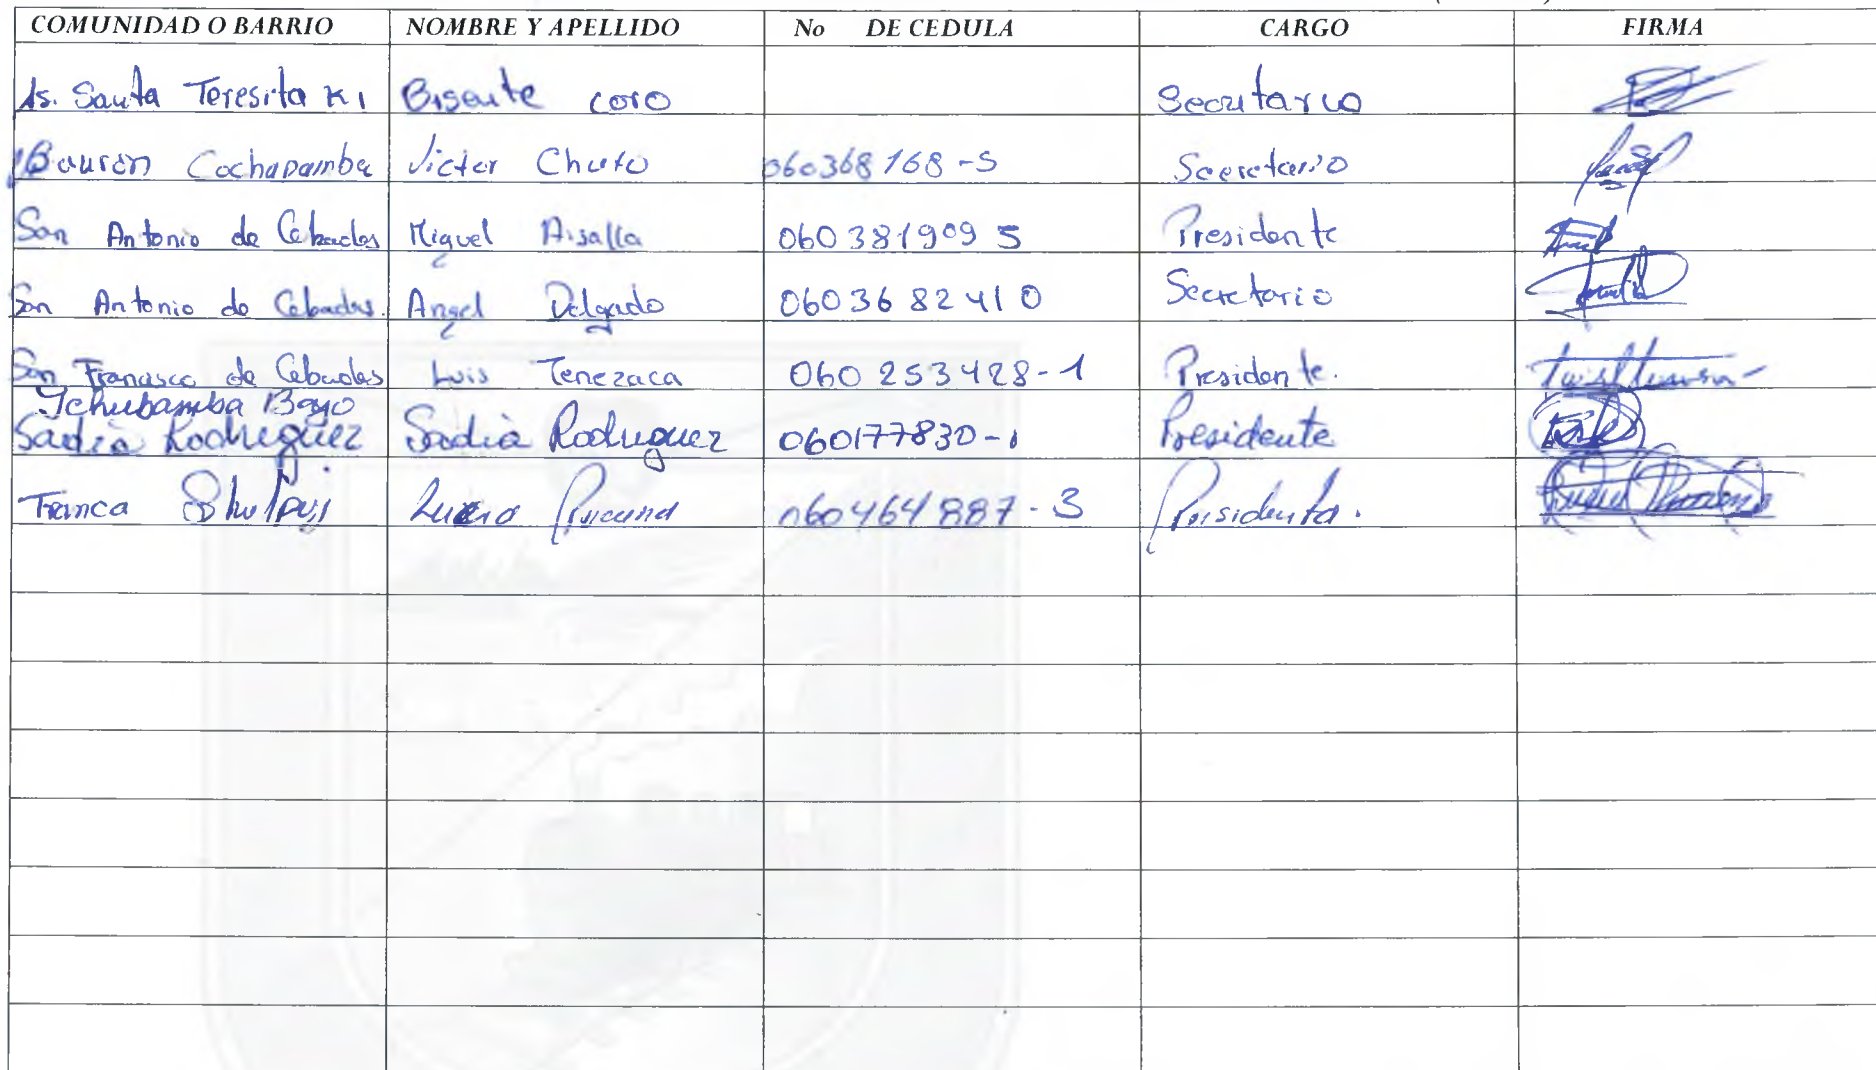 COMUNIDAD O BARRIO NOMBRE Y APELLIDO No DE CEDULA CARGO FIRMA
As. Santa Teresita K1 Bisente coro Secretario
Cochapamba Victor Chuto 060368168-5 Secretario
San Antonio de Cebadas Miguel Aisalla 0603819095 Presidente
San Antonio de Cebadas. Angel Delgado 0603682410 Secretario
San Francisco de Cebadas Luis Tenezaca 060253428-1 Presidente.
Ichubamba Bajo
Sadia Rodriguez Sadia Rodriguez 060177830-1 Presidente
Tranca 060464887-3 Presidenta.